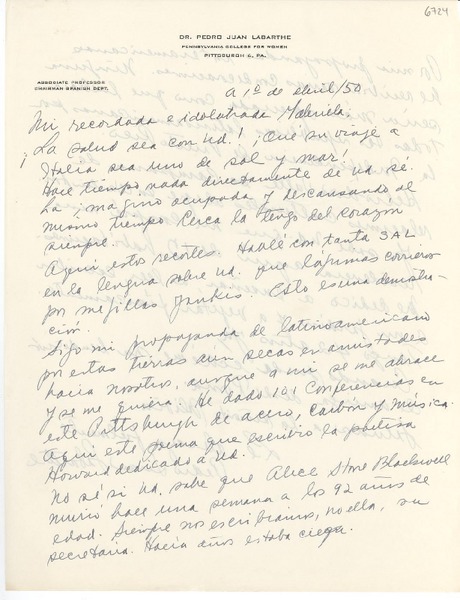 6724
DR. PEDRO JUAN LABARTHE
PENNSYLVANIA COLLEGE FOR WOMEN
PITTSBURGH 6, PA.
ASSOCIATE PROFESSOR
CHAIRMAN SPANISH DEPT.
A 1º de abril/50
Mi recordada e idolatrada Gabriela:
¡La salud sea con Ud.! ¡Que su viaje a
Italia sea uno de sol y mar!
Hace tiempo nada directamente de Ud. sé.
La imagino ocupada y descansando al
mismo tiempo. Cerca la tengo del corazón
siempre.
Aquí estos recortes. Hablé con tanta SAL
en la lengua sobre Ud. que lágrimas corrieron
por mejillas yankis. Esto es una demostra-
ción.
Sigo mi propaganda de latinoamericano
por estas tierras aún secas en amistades
hacia nosotros, aunque a mi se me abrace
y se me quiera. He dado 101 Conferencias en
este Pittsburgh de acero, Carbón y Música.
Aquí este poema que escribió la poetisa
Howard dedicado a Ud.
No sé si Ud. sabe que Alice Stone Blackwell
murió hace una semana a los 92 años de
edad. Siempre nos escribíamos, no ella, su
secretaria. Hacía años estaba ciega.